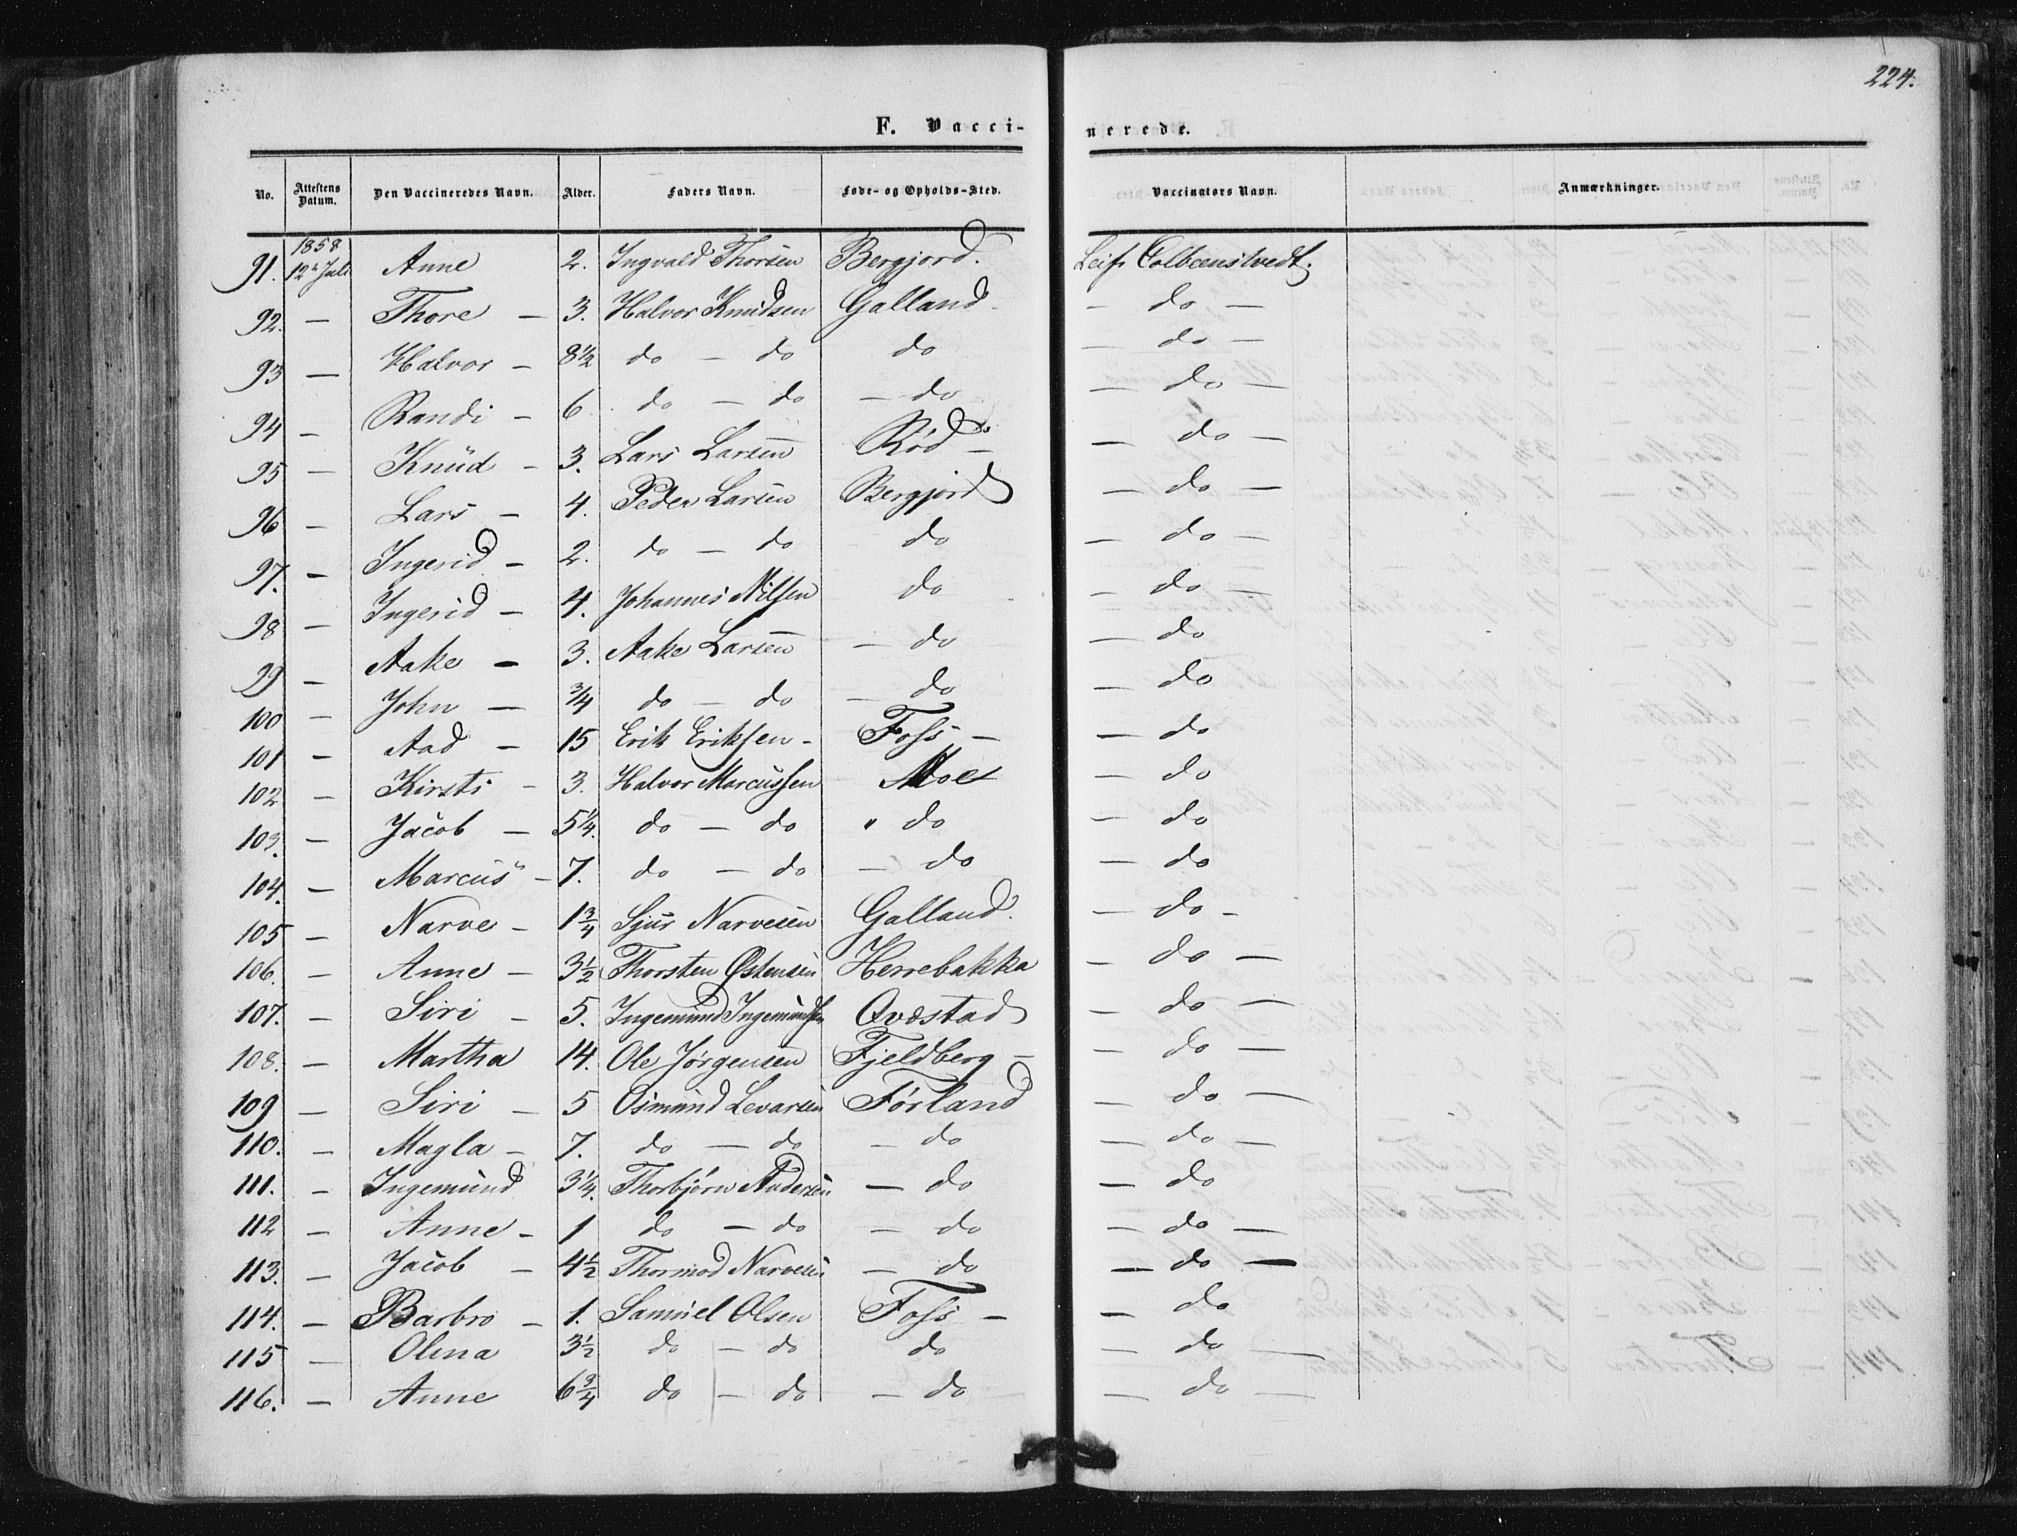 224.
F. Vacci- nerede.
No. Attestens Datum. Den Vaccineredes Navn. Alder. Faders Navn. Føde- og Opholds-Sted. Vaccinators Navn. Anmærkninger.
1858
91. 12te Juli Anne 2. Ingvald Thorsen Bergjord. Leif
92. — Thore — 3. Halvor Knudsen Galland — do —
93 — Halvor — 8½ do — do do — do —
94 — Randi — 6 do — do — do — do —
95 — Knud — 3. Lars Larsen Rød — — do —
96 — Lars — 4. Peder Larsen Bergjord — do —
97. — Ingerid — 2. do — do do — do —
98 — Ingerid — 4. Johannes Nilsen do — do —
99 — Aake — 3. Aake Larsen — do — do
100 — John — ¾ do — do — do — do
101 — Aad — 15 Erik Eriksen — Foss — — do
102 — Kirsti — 3. Halvor Marcussen Moe — do
103. — Jacob — 5¼. do — do " do — do
104. — Marcus — 7. do — do — do — do
105 — Narve — 1¾ Sjur Narvesen Galland. — do —
106. — Anne — 3½ Thorsten Østensen Herrebakka — do —
107. — Siri — 5. Ingemund Ingemundsen Qvæstad — do —
108. — Martha 14. Ole Jørgensen Fjeldberg — — do —
109 — Siri — 5 Osmund Levarsen Førland — do —
110. — Magla — 7. do — do — do — do —
111. — Ingemund 3¼. Thorbjørn Andersen — do — do
112 — Anne — 1 do — do — do — do —
113. — Jacob — 4½ Thormod Narvesen — do — do —
114. — Barbro — 1. Samuel Olsen Foss — — do
115 — Olena 3½ do — do do — do —
116. — Anne 6¾ do — do — do — do —